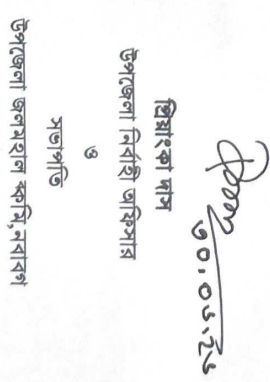 ৩০.০৬.২৬
প্রিয়াংকা দাস
উপজেলা নির্বাহী অফিসার
ও
সভাপতি
উপজেলা জলমহাল কমিটি